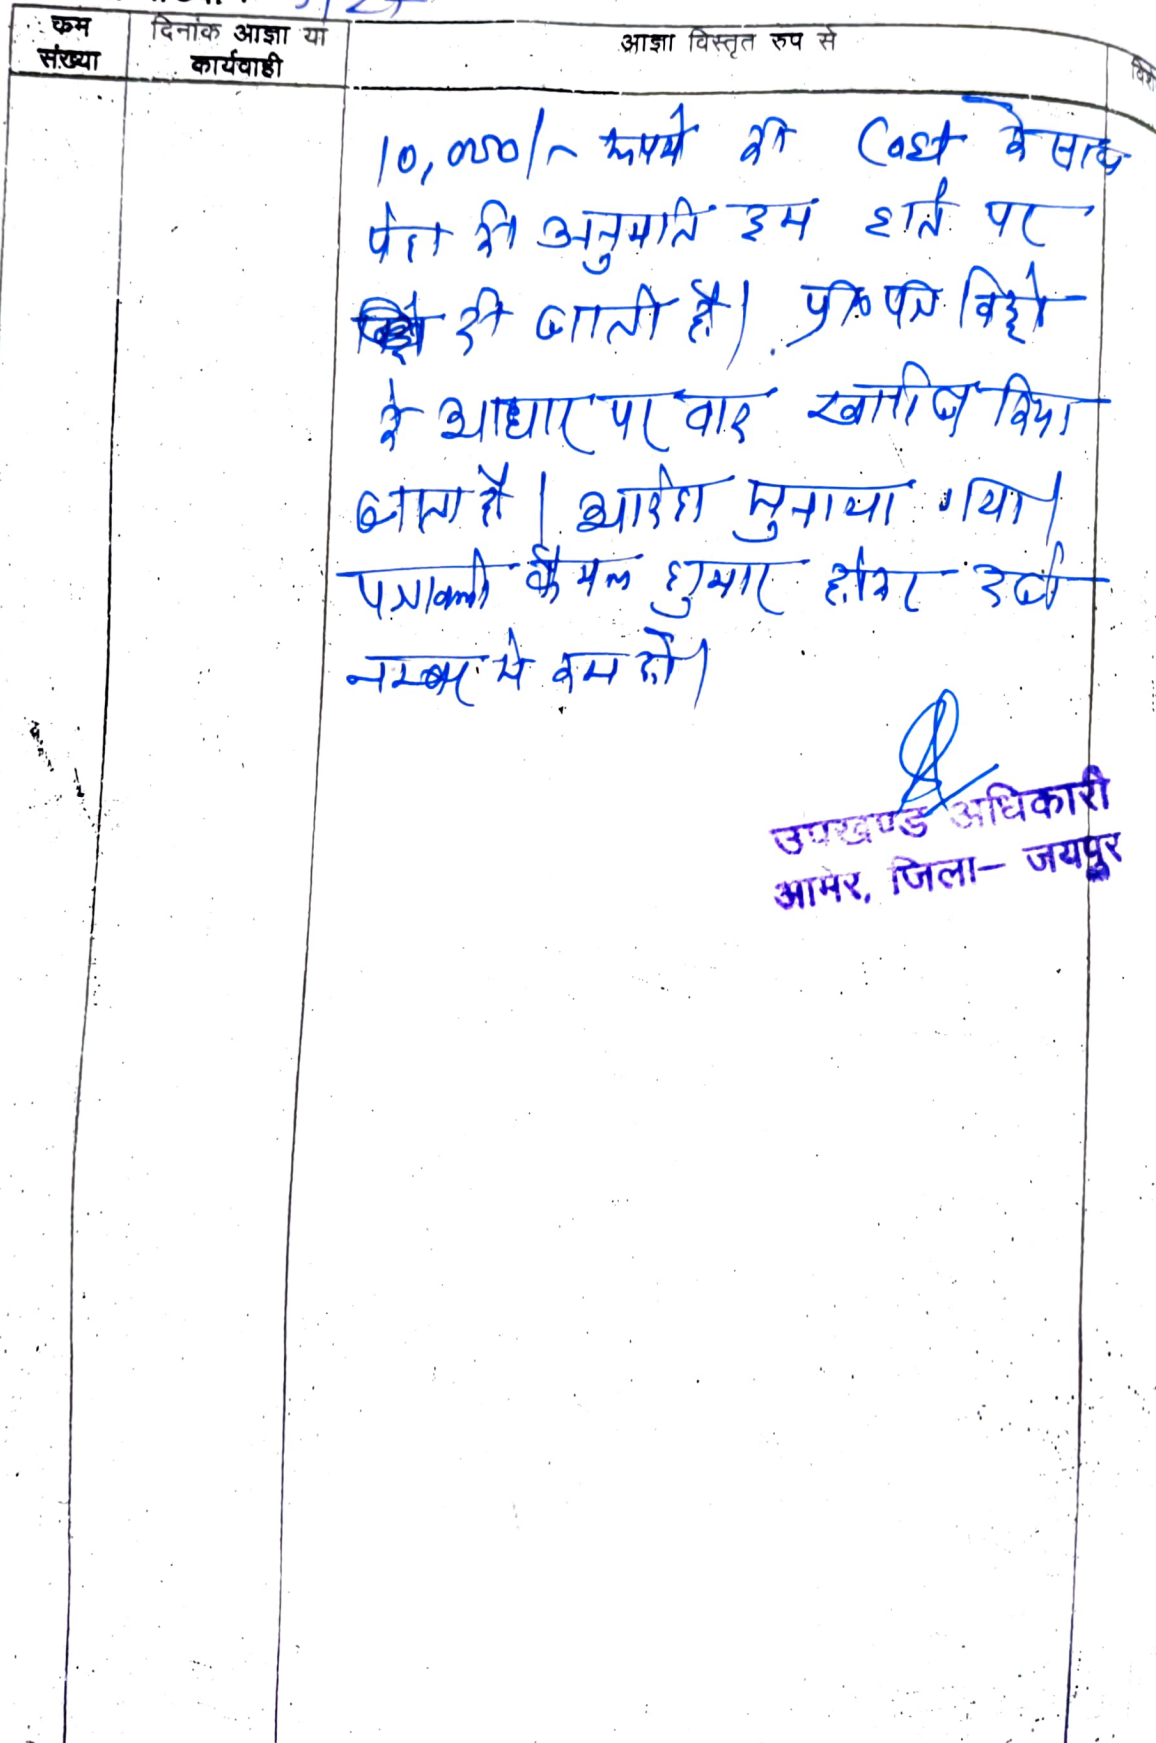 क्रम संख्या
दिनांक आज्ञा या कार्यवाही
आज्ञा विस्तृत रुप से
10,000/- रूपये की Cost के साथ
पेश की अनुमति इस शर्त पर
दी जाती है। प्रा० पत्र विड्रो
के आधार पर वाद खारीज किया
जाता है। आदेश सुनाया गया।
पत्रावली फैसल शुमार होकर दर्ज
नम्बर से कम हो।
उपखण्ड अधिकारी
आमेर, जिला- जयपुर